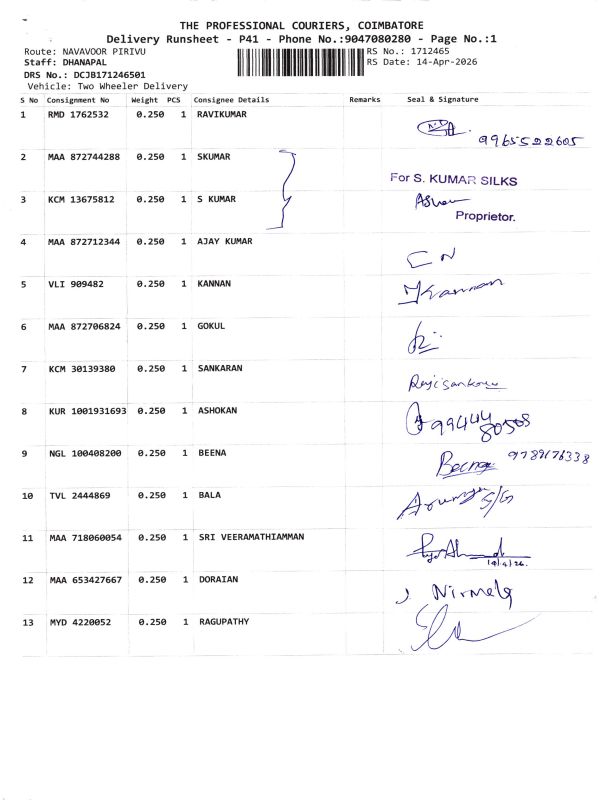 THE PROFESSIONAL COURIERS, COIMBATORE
Delivery Runsheet - P41 - Phone No.:9047080280 - Page No.:1
Route: NAVAVOOR PIRIVU RS No.: 1712465
Staff: DHANAPAL RS Date: 14-Apr-2026
DRS No.: DCJB171246501
Vehicle: Two Wheeler Delivery
S No Consignment No Weight PCS Consignee Details Remarks Seal & Signature
1 RMD 1762532 0.250 1 RAVIKUMAR
9965522605
2 MAA 872744288 0.250 1 SKUMAR
For S. KUMAR SILKS
3 KCM 13675812 0.250 1 S KUMAR
Proprietor.
4 MAA 872712344 0.250 1 AJAY KUMAR
CN
5 VLI 909482 0.250 1 KANNAN
Kannan
6 MAA 872706824 0.250 1 GOKUL
7 KCM 30139380 0.250 1 SANKARAN
8 KUR 1001931693 0.250 1 ASHOKAN
99444
80508
9 NGL 100408200 0.250 1 BEENA
Beena 9789176338
10 TVL 2444869 0.250 1 BALA
S/G
11 MAA 718060054 0.250 1 SRI VEERAMATHIAMMAN
14/4/26.
12 MAA 653427667 0.250 1 DORAIAN
J Nirmala
13 MYD 4220052 0.250 1 RAGUPATHY